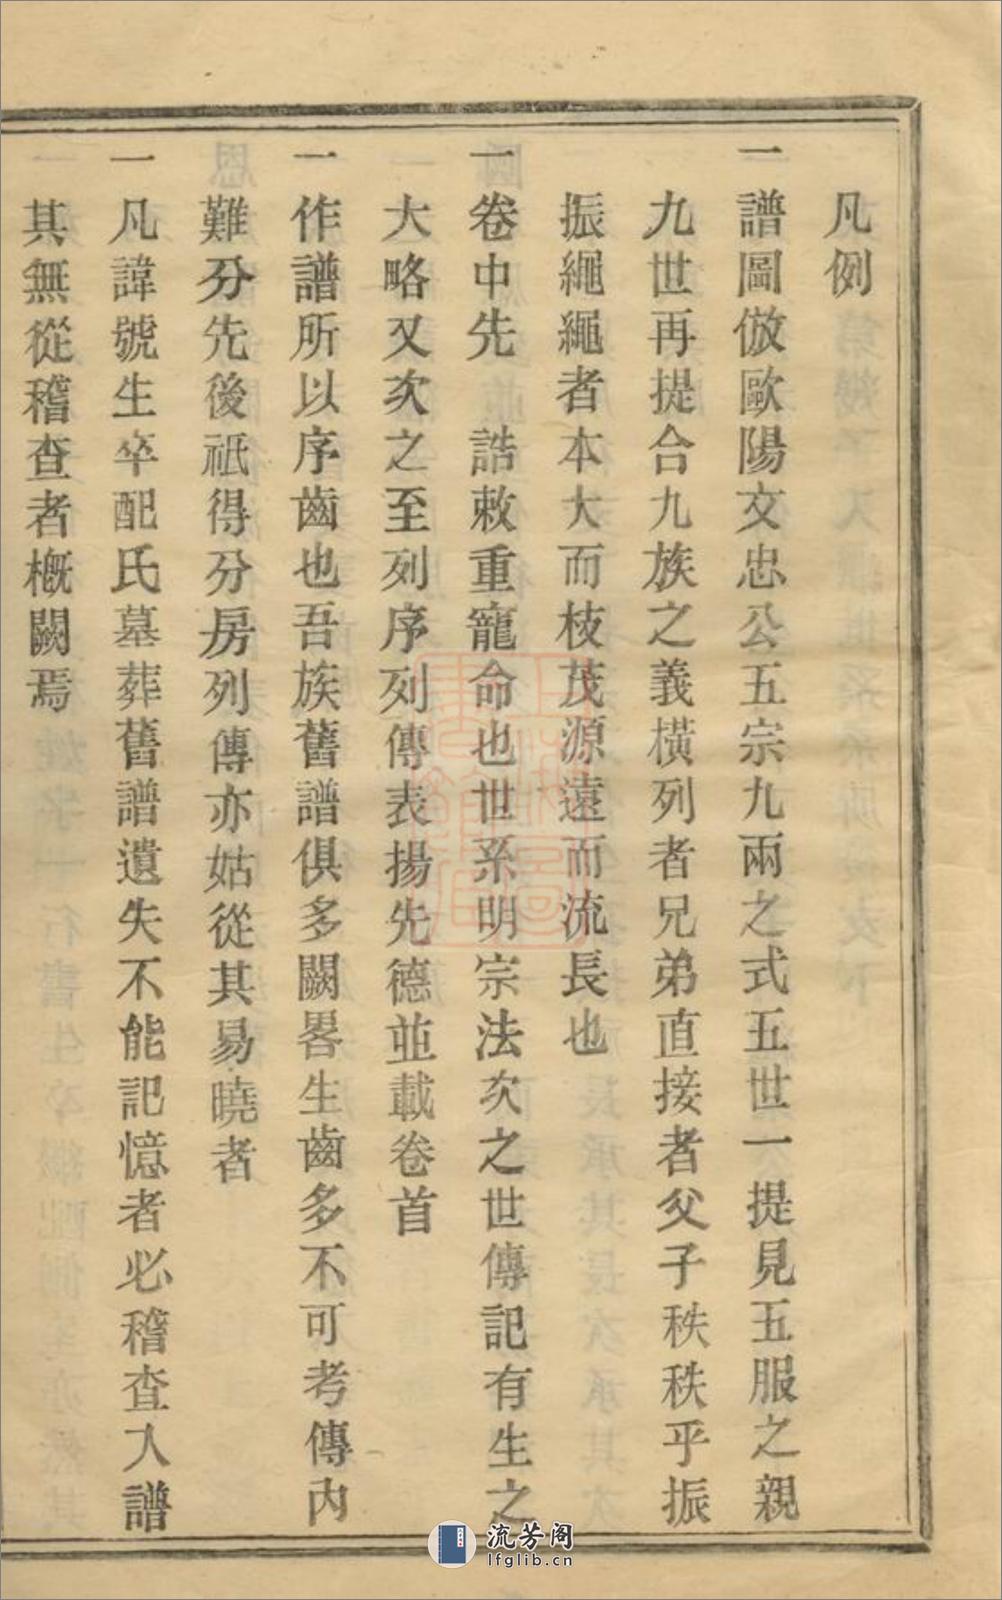 凡例
一譜圖倣歐陽文忠公五宗九兩之式五世一提見五服之親
九世再提合九族之義橫列者兄弟直接者父子秩秩乎振
振繩繩者本大而枝茂源遠而流長也
一卷中先　誥敕重寵命也世系明宗法次之世傳記有生之
大略又次之至列序列傳表揚先德並載卷首
一作譜所以序齒也吾族舊譜俱多闕畧生齒多不可考傳內
難分先後祇得分房列傳亦姑從其易曉者
一凡諱號生卒配氏墓葬舊譜遺失不能記憶者必稽查入譜
其無從稽查者概闕焉
流芳阁
lfglib.cn